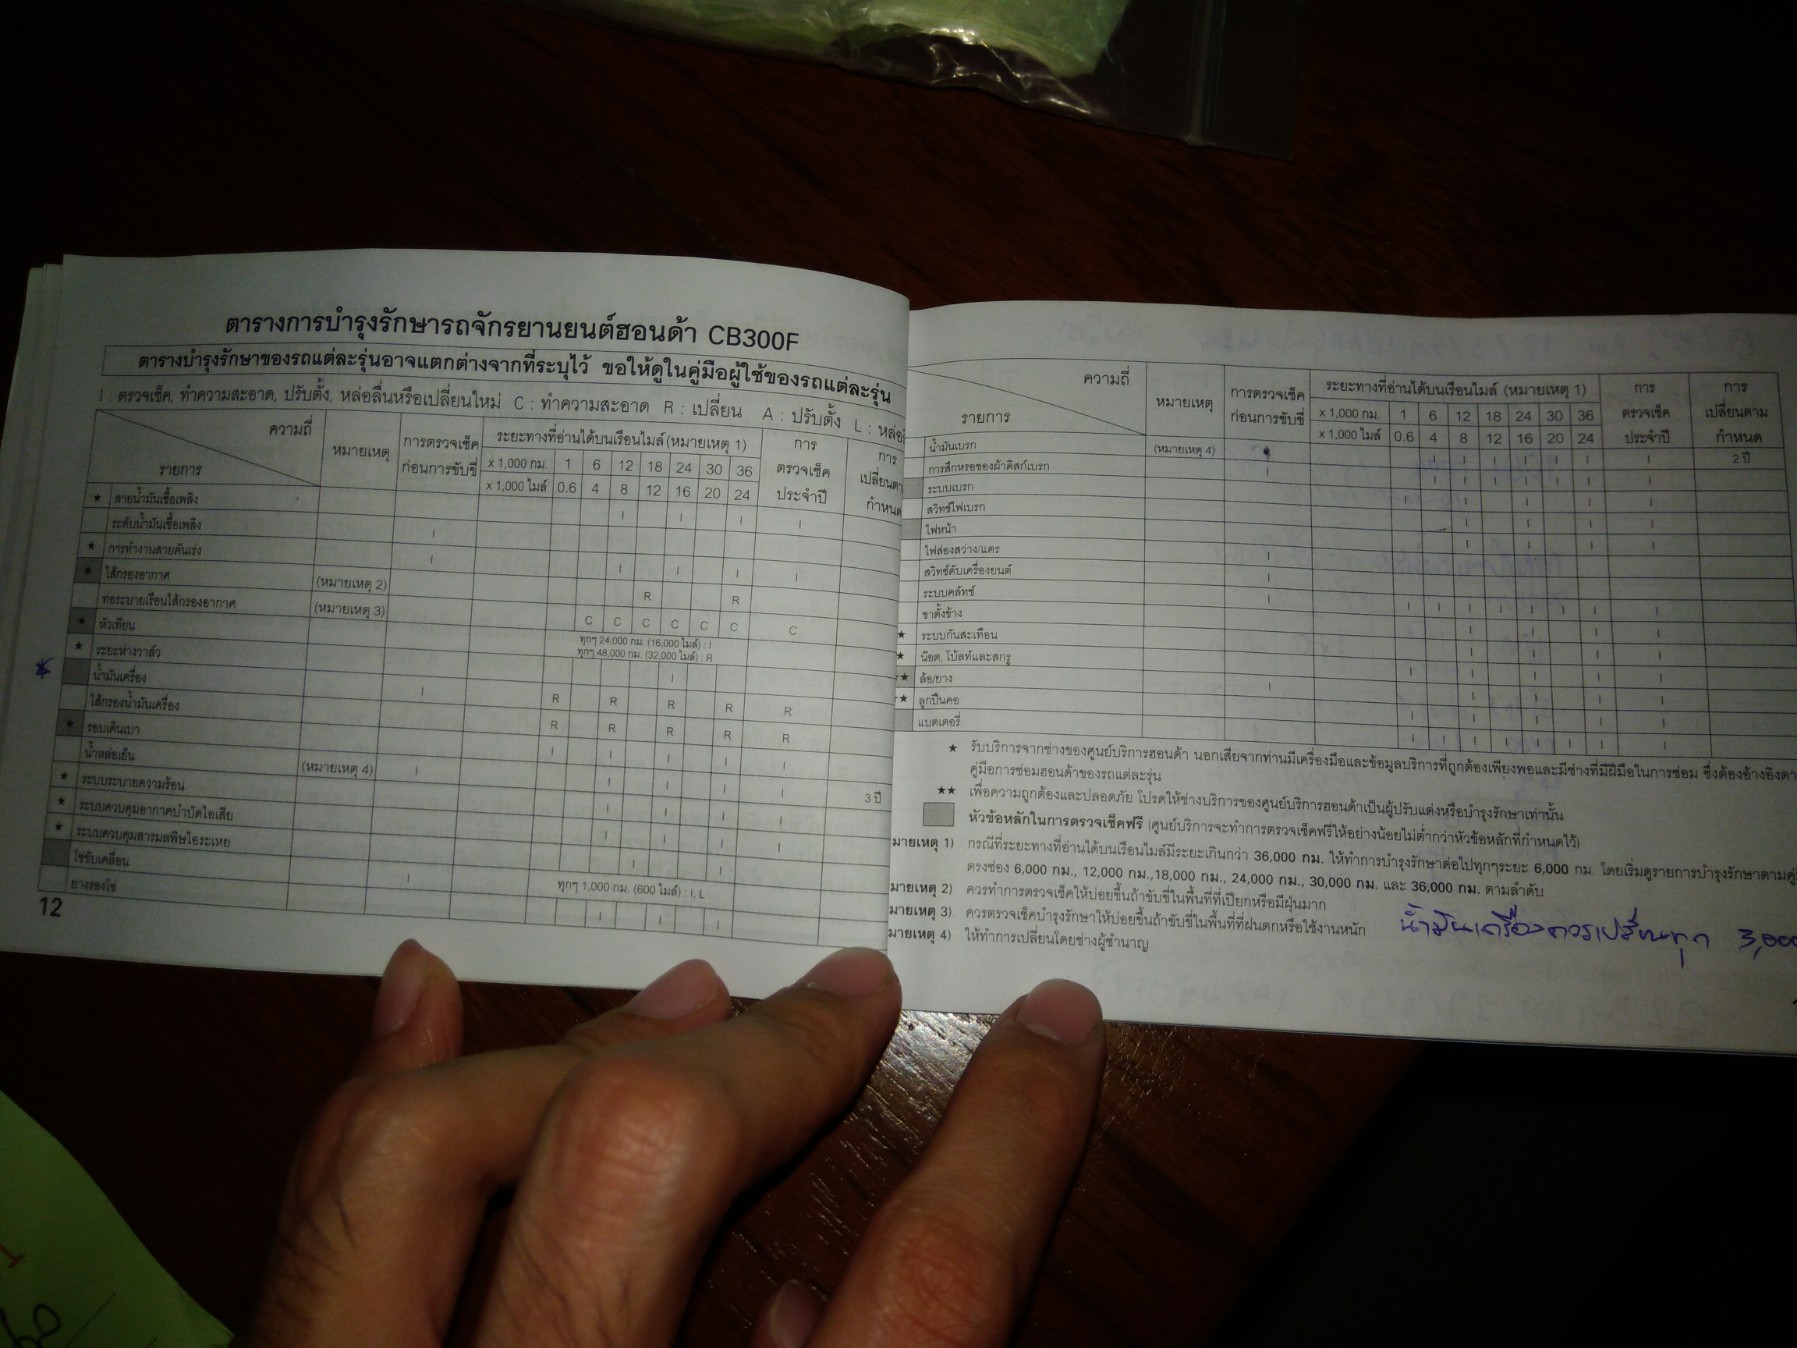 ตารางการบำรุงรักษารถจักรยานยนต์ฮอนด้า CB300F
ตารางบำรุงรักษาของรถแต่ละรุ่นอาจแตกต่างจากที่ระบุไว้ ขอให้ดูในคู่มือผู้ใช้ของรถแต่ละรุ่น
I : ตรวจเช็ค, ทำความสะอาด, ปรับตั้ง, หล่อลื่นหรือเปลี่ยนใหม่ C : ทำความสะอาด R : เปลี่ยน A : ปรับตั้ง L :
ความถี่
รายการ
หมายเหตุ
การตรวจเช็ค
ก่อนการขับขี่
ระยะทางที่อ่านได้บนเรือนไมล์ (หมายเหตุ 1)
x 1,000 กม. 1 6 12 18 24 30 36
x 1,000 ไมล์ 0.6 4 8 12 16 20 24
การ
ตรวจเช็ค
ประจำปี
การ
★ สายน้ำมันเชื้อเพลิง I I I I
ระดับน้ำมันเชื้อเพลิง I
★ การทำงานสายคันเร่ง I I I I I
★ ไส้กรองอากาศ (หมายเหตุ 2) R R
ท่อระบายเรือนไส้กรองอากาศ (หมายเหตุ 3) C C C C C C C
★ หัวเทียน ทุกๆ 24,000 กม. (16,000 ไมล์) : I
ทุกๆ 48,000 กม. (32,000 ไมล์) : R
★ ระยะห่างวาล์ว I
น้ำมันเครื่อง I R R R R R
ไส้กรองน้ำมันเครื่อง R R R R R
★ รอบเดินเบา I I I I I
น้ำหล่อเย็น (หมายเหตุ 4) I I I I I 3 ปี
★ ระบบระบายความร้อน I I I I
★ ระบบควบคุมอากาศบำบัดไอเสีย I I I I
★ ระบบควบคุมสารมลพิษไอระเหย I I
โซ่ขับเคลื่อน I ทุกๆ 1,000 กม. (600 ไมล์) : I, L
ยางรองโซ่ I I I
12
ความถี่
รายการ
หมายเหตุ
การตรวจเช็ค
ก่อนการขับขี่
ระยะทางที่อ่านได้บนเรือนไมล์ (หมายเหตุ 1)
x 1,000 กม. 1 6 12 18 24 30 36
x 1,000 ไมล์ 0.6 4 8 12 16 20 24
การ
ตรวจเช็ค
ประจำปี
การ
เปลี่ยนตาม
กำหนด
น้ำมันเบรก (หมายเหตุ 4) I I I I I I I 2 ปี
การสึกหรอของผ้าดิสก์เบรก I I I I I I I I
ระบบเบรก I I I I I
สวิทช์ไฟเบรก I I I I
ไฟหน้า I I I I
ไฟส่องสว่าง/แตร I
สวิทช์ดับเครื่องยนต์ I
ระบบคลัทช์ I I I I I I I I I
ขาตั้งข้าง I I I I
★ ระบบกันสะเทือน I I I I
★ น๊อต, โบ้ลท์และสกรู I I I I I
★★ ล้อ/ยาง I I I I I
★★ ลูกปืนคอ I I I I I
แบตเตอรี่ I I I I I I I I
★ รับบริการจากช่างของศูนย์บริการฮอนด้า นอกเสียจากท่านมีเครื่องมือและข้อมูลบริการที่ถูกต้องเพียงพอและมีช่างที่มีฝีมือในการซ่อม ซึ่งต้องอ้างอิงตาม
คู่มือการซ่อมฮอนด้าของรถแต่ละรุ่น
★★ เพื่อความถูกต้องและปลอดภัย โปรดให้ช่างบริการของศูนย์บริการฮอนด้าเป็นผู้ปรับแต่งหรือบำรุงรักษาเท่านั้น
หัวข้อหลักในการตรวจเช็คฟรี (ศูนย์บริการจะทำการตรวจเช็คฟรีให้อย่างน้อยไม่ต่ำกว่าหัวข้อหลักที่กำหนดไว้)
มายเหตุ 1) กรณีที่ระยะทางที่อ่านได้บนเรือนไมล์มีระยะเกินกว่า 36,000 กม. ให้ทำการบำรุงรักษาต่อไปทุกๆระยะ 6,000 กม. โดยเริ่มดูรายการบำรุงรักษาตามคู่
ตรงช่อง 6,000 กม., 12,000 กม.,18,000 กม., 24,000 กม., 30,000 กม. และ 36,000 กม. ตามลำดับ
มายเหตุ 2) ควรทำการตรวจเช็คให้บ่อยขึ้นถ้าขับขี่ในพื้นที่ที่เปียกหรือมีฝุ่นมาก
มายเหตุ 3) ควรตรวจเช็คบำรุงรักษาให้บ่อยขึ้นถ้าขับขี่ในพื้นที่ที่ฝนตกหรือใช้งานหนัก
มายเหตุ 4) ให้ทำการเปลี่ยนโดยช่างผู้ชำนาญ
น้ำมันเครื่องควรเปลี่ยนทุก 3,000